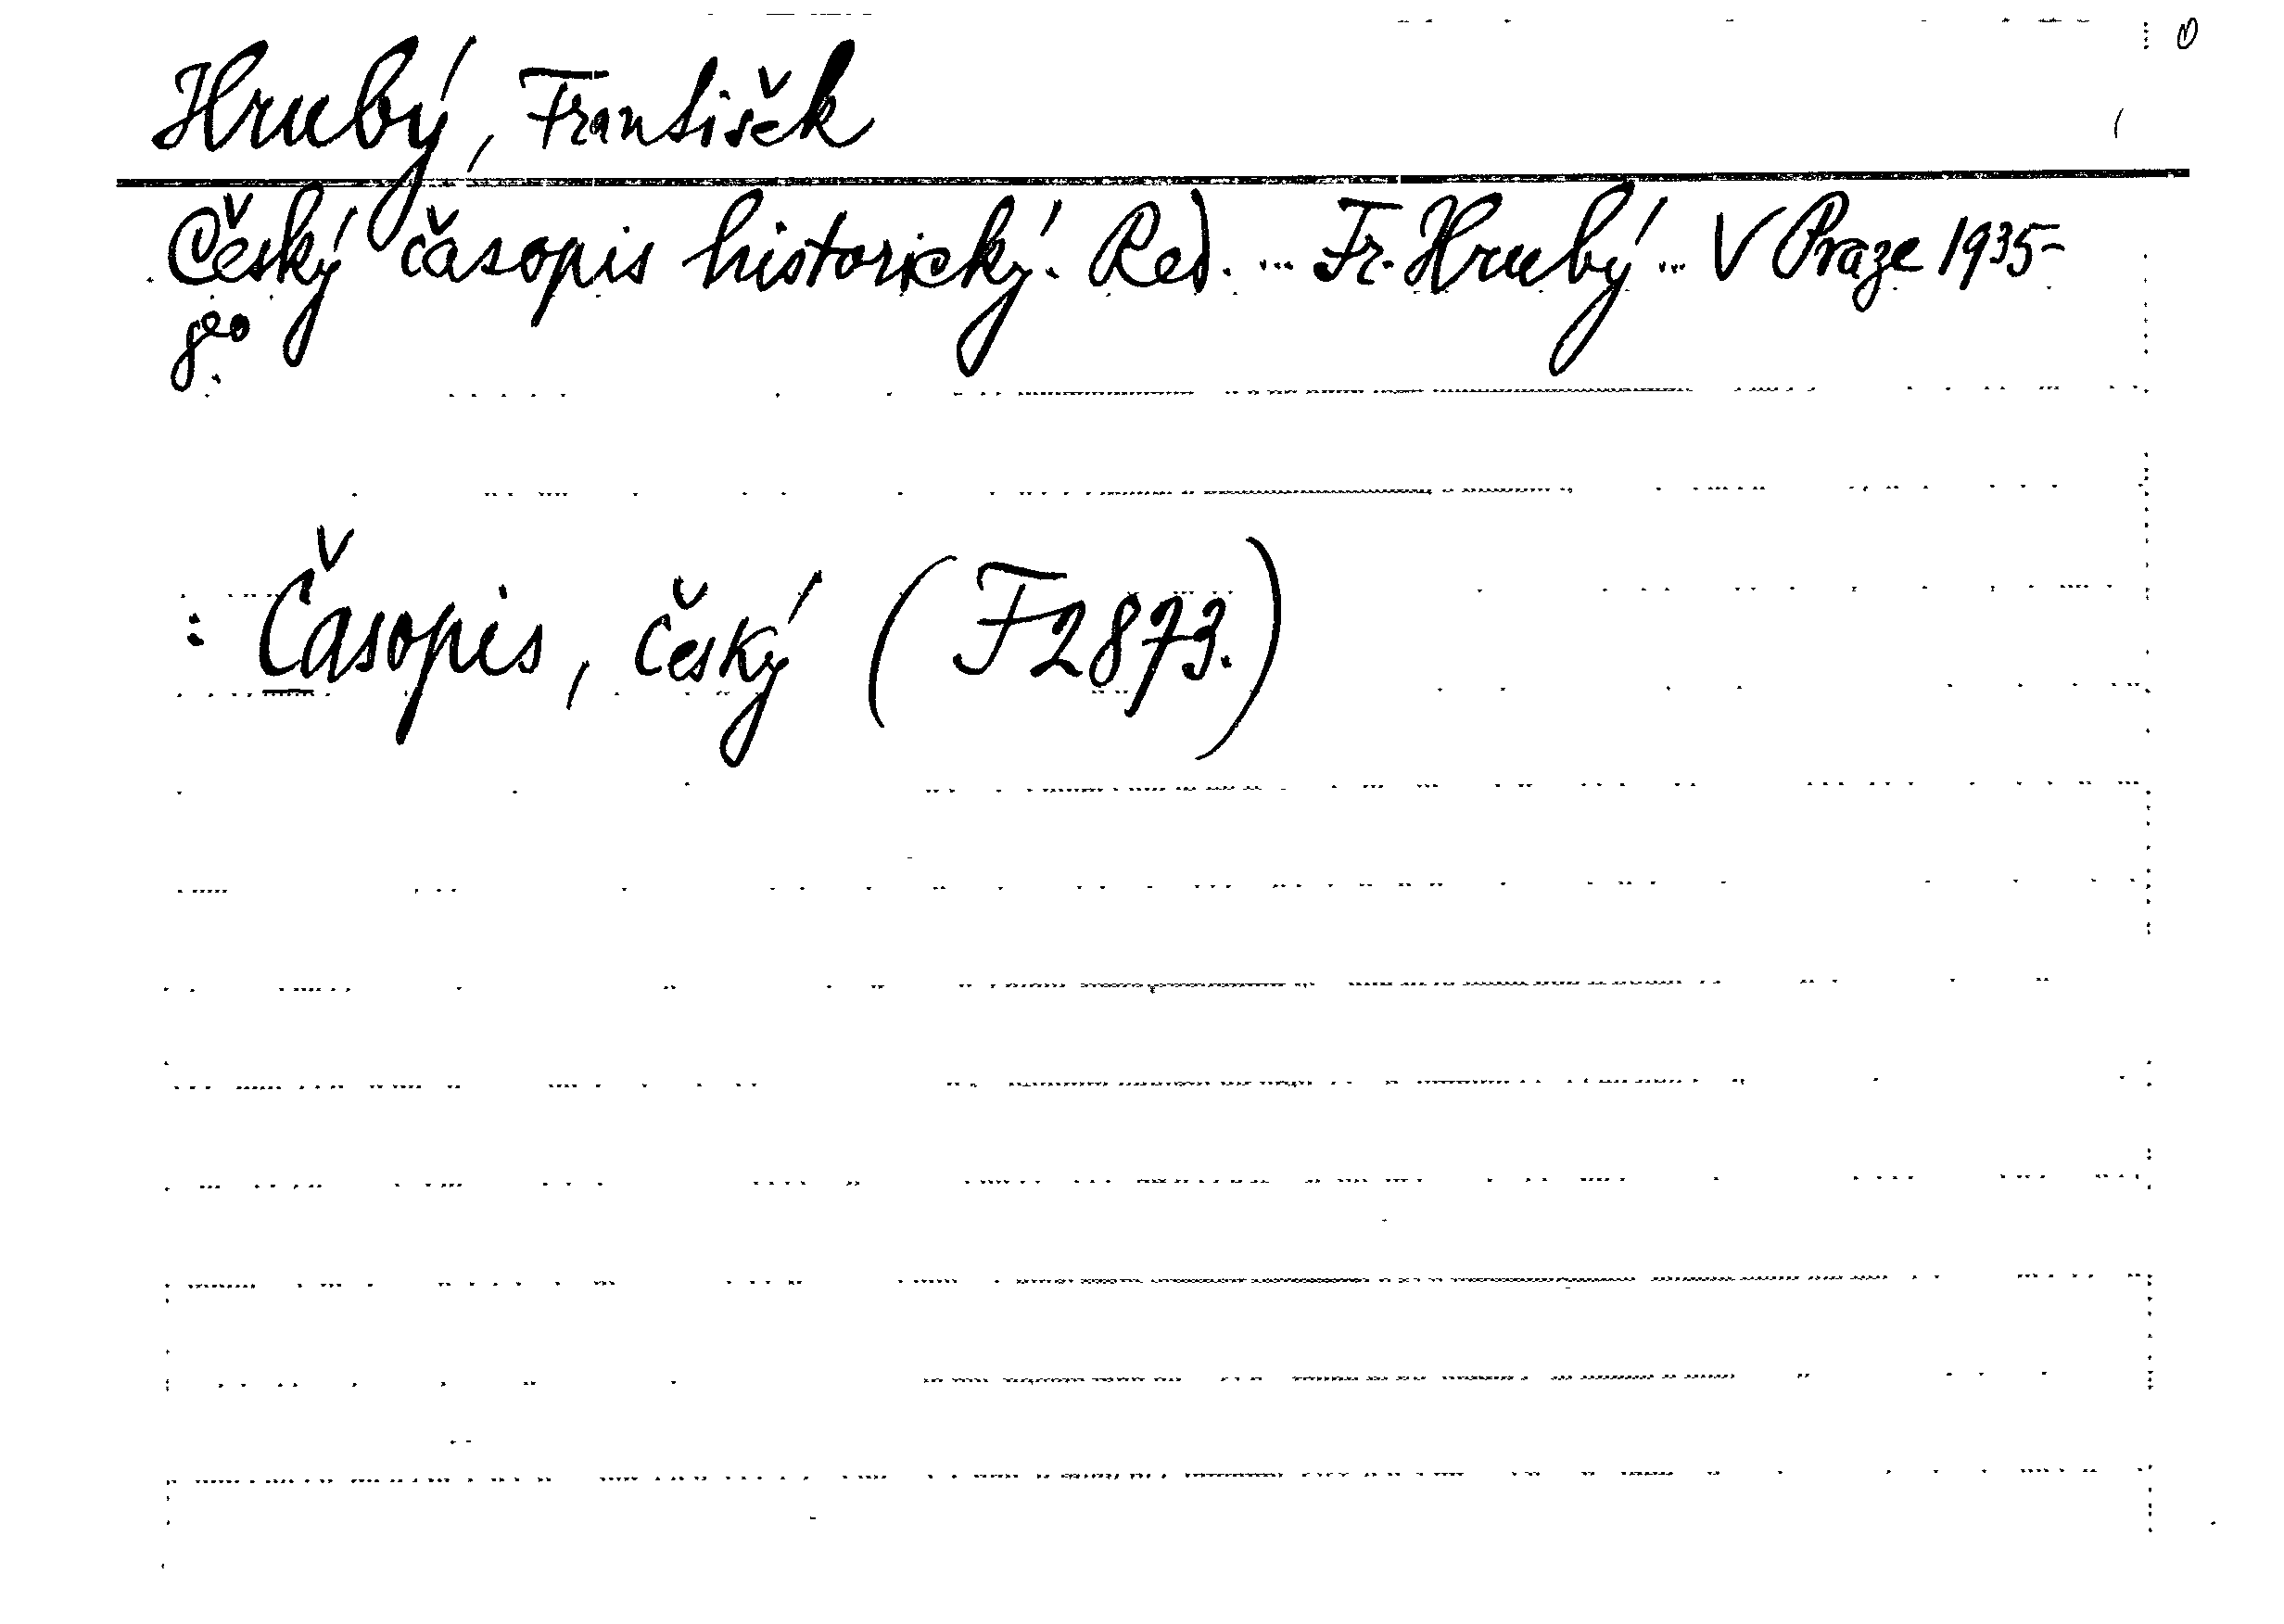 Hrubý, František
Český časopis historický. Red. ... Fr. Hrubý ... V Praze 1935-
8°
: Časopis, český (F2873.)